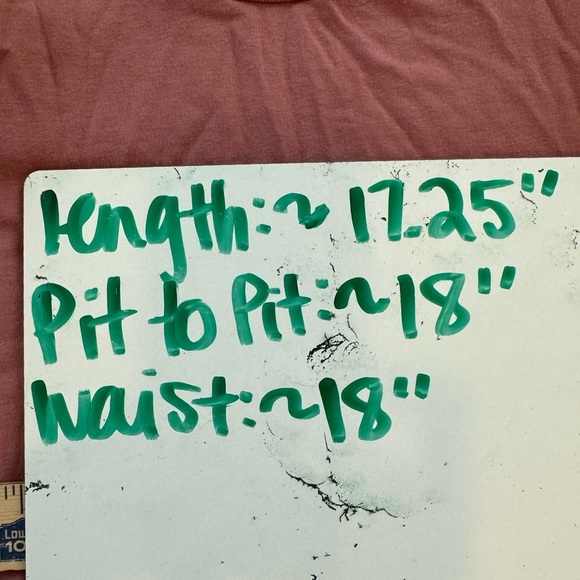 Length: ~ 17.25"
Pit to Pit: ~18"
Waist: ~18"
Low
10